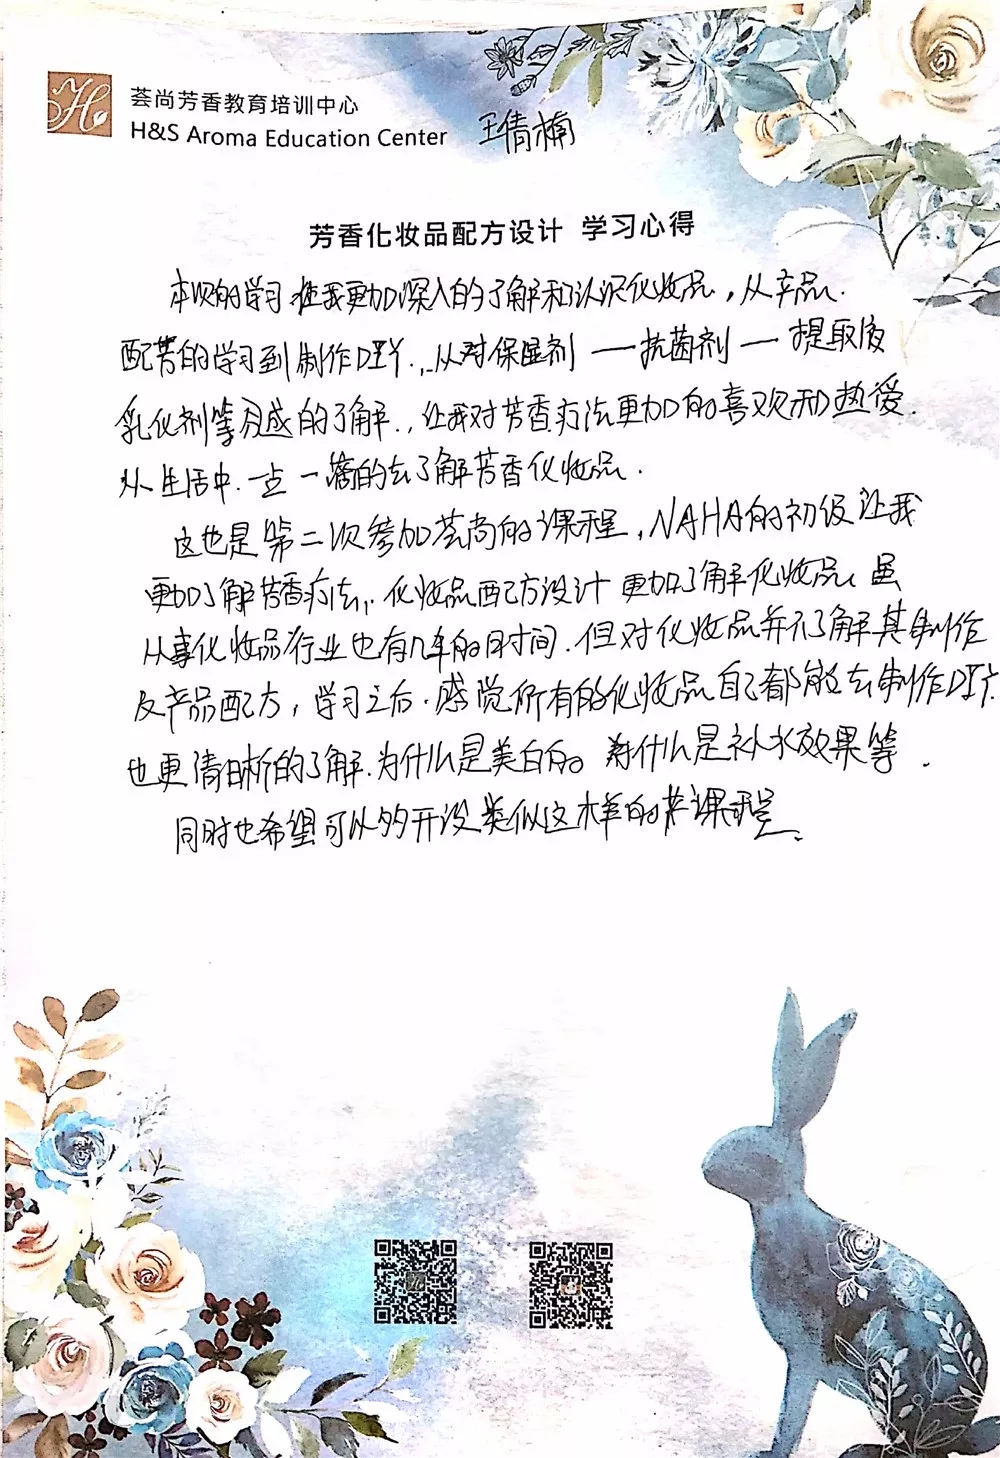 荟尚芳香教育培训中心
H&S Aroma Education Center 王倩楠
芳香化妆品配方设计 学习心得
本次的学习 使我更加深入的了解和认识化妆品，从产品.
配芳的学习到制作DIY.，从对保湿剂 — 抗菌剂 — 提取液
乳化剂等成的了解.，让我对芳香疗法更加的喜欢和热爱.
从生活中.一点一滴的去了解芳香化妆品.
这也是第二次参加荟尚的课程，NAHA的初级让我
更加了解芳香疗法，化妆品配方设计更加了解化妆品，虽
从事化妆品行业也有几年的时间.但对化妆品并不了解其制作
及产品配方，学习之后.感觉所有的化妆品自己都能去制作DIY.
也更清晰的了解.为什么是美白的。为什么是补水效果等.
同时也希望可以多开设类似这样的课程.